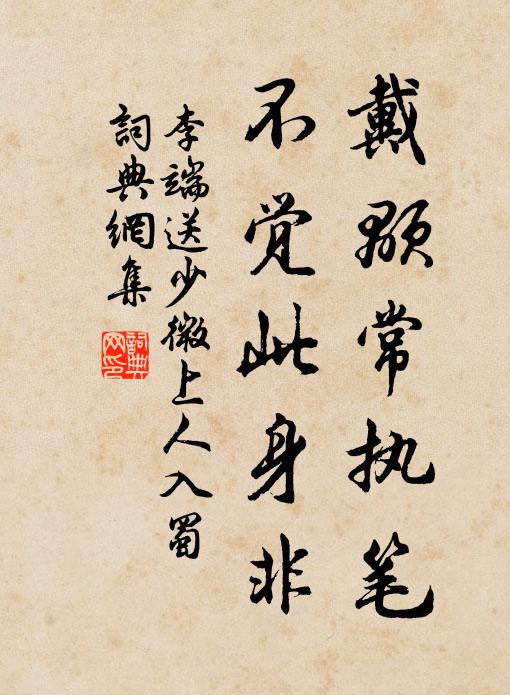 戴颙常执笔
不觉此身非
李端送少微上人入蜀
詞典網集
詞典
网印